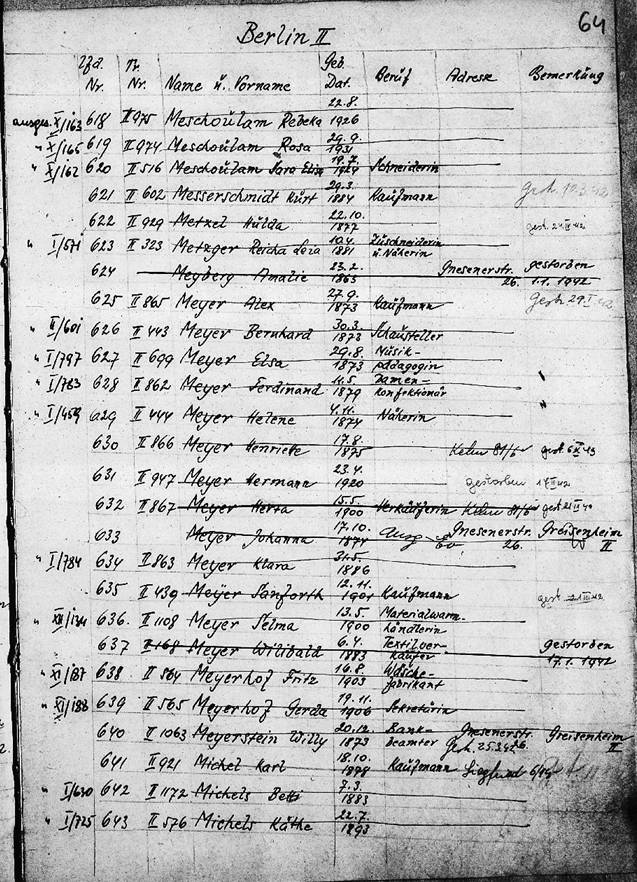 64
Berlin II
Lfd. Nr. Tr. Nr. Name u. Vorname Geb. Dat. Beruf Adresse Bemerkung
ausges. X/163 618 II 975 Meschoulam Rebeka 22.8. 1926
" X/165 619 II 974 Meschoulam Rosa 29.9. 1931
" X/162 620 II 516 Meschoulam Sara 19.7. Schneiderin
621 II 602 Messerschmidt Kurt 1884 Kaufmann
622 II 929 Metzel Hulda 22.10. 1877
" I/571 623 II 323 Metzger 10.4. 1881 Zuschneiderin u. Näherin
624 Meyberg Amalie 23.2. 1863 Gnesenerstr. 26. gestorben 1.1.1942
625 II 865 Meyer Alex 27.9. 1873 Kaufmann
" II/601 626 II 443 Meyer Bernhard 30.3. 1873 Schausteller
" I/797 627 II 699 Meyer Elsa 29.8. 1873 Musik-pädagogin
" I/783 628 II 862 Meyer Ferdinand 11.5. 1879 Damen-konfektionär "
" I/459 629 II 444 Meyer Helene 4.11. 1874 Näherin "
630 II 866 Meyer Henriette 17.8. 1875
631 II 947 Meyer Hermann 23.4. 1920 gestorben
632 II 867 Meyer Herta 15.5. 1900 Verkäuferin
633 Meyer Johanna 17.10. 1874 Gnesenerstr. 26. Greisenheim II
" I/784 634 II 863 Meyer Klara 1886
635 II 439 Meyer 12.11. 1901 Kaufmann
" XII/134 636. II 1108 Meyer Selma 13.5 1900 Materialwarn-händlerin
637 Meyer Willibald 6.4. 1883 Textilver-käufer gestorben 17.1.1942
" XI/187 638 II 564 Meyerhof Fritz 16.8. 1903 Wäsche-fabrikant
" XI/188 639 II 565 Meyerhof Gerda 19.11. 1906 Sekretärin
640 II 1063 Meyerstein Willy 20.12. 1873 Bank-beamter Gnesenerstr. 26. Greisenheim II
Gest. 25.3.42
641 II 921 Michel Karl 18.10. 1878 Kaufmann
" I/630 642 II 1172 Michels Betti 7.3. 1883
" I/725 643 II 576 Michels Käthe 22.7. 1893